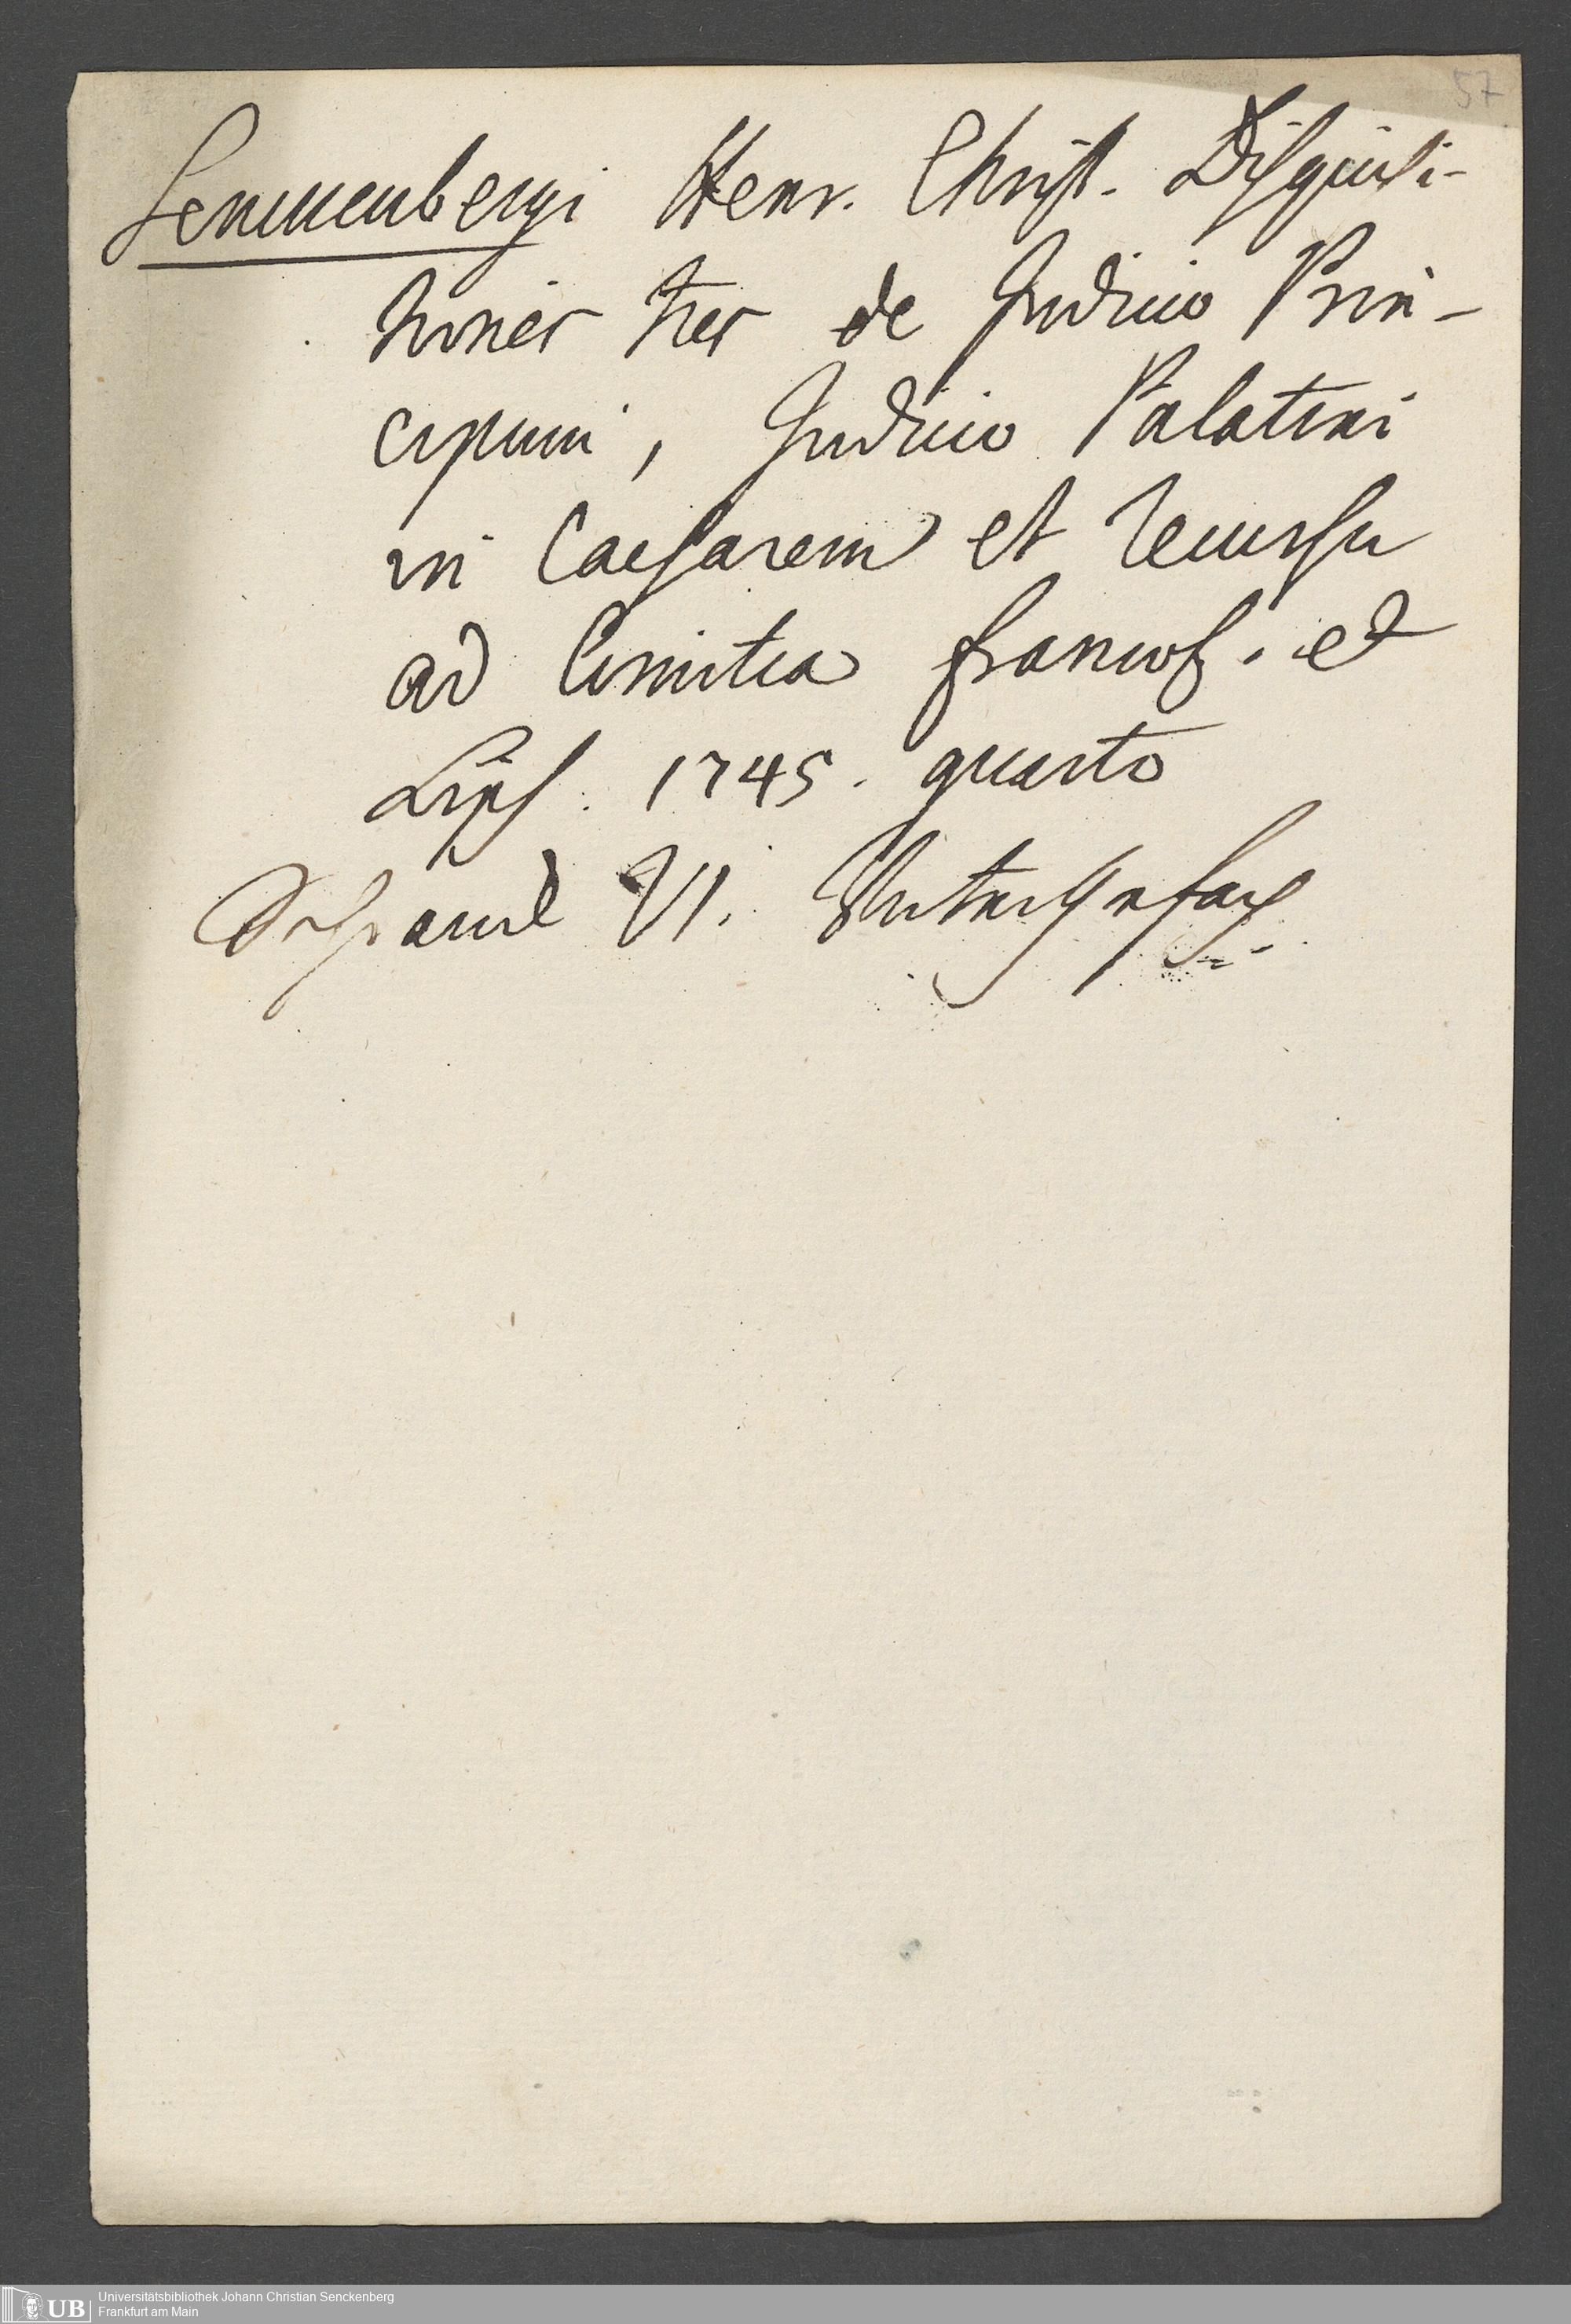 57
Sennenbergi Henr. Christ. Disquisi-
tiones tres de Judicio Prin-
cipum, Judicio Palatini
in Caesarem et recursu
ad Comitia francof. et
Lips. 1745. quarto
Schrank VI. Unterstes fach
Universitätsbibliothek Johann Christian Senckenberg
UB Frankfurt am Main